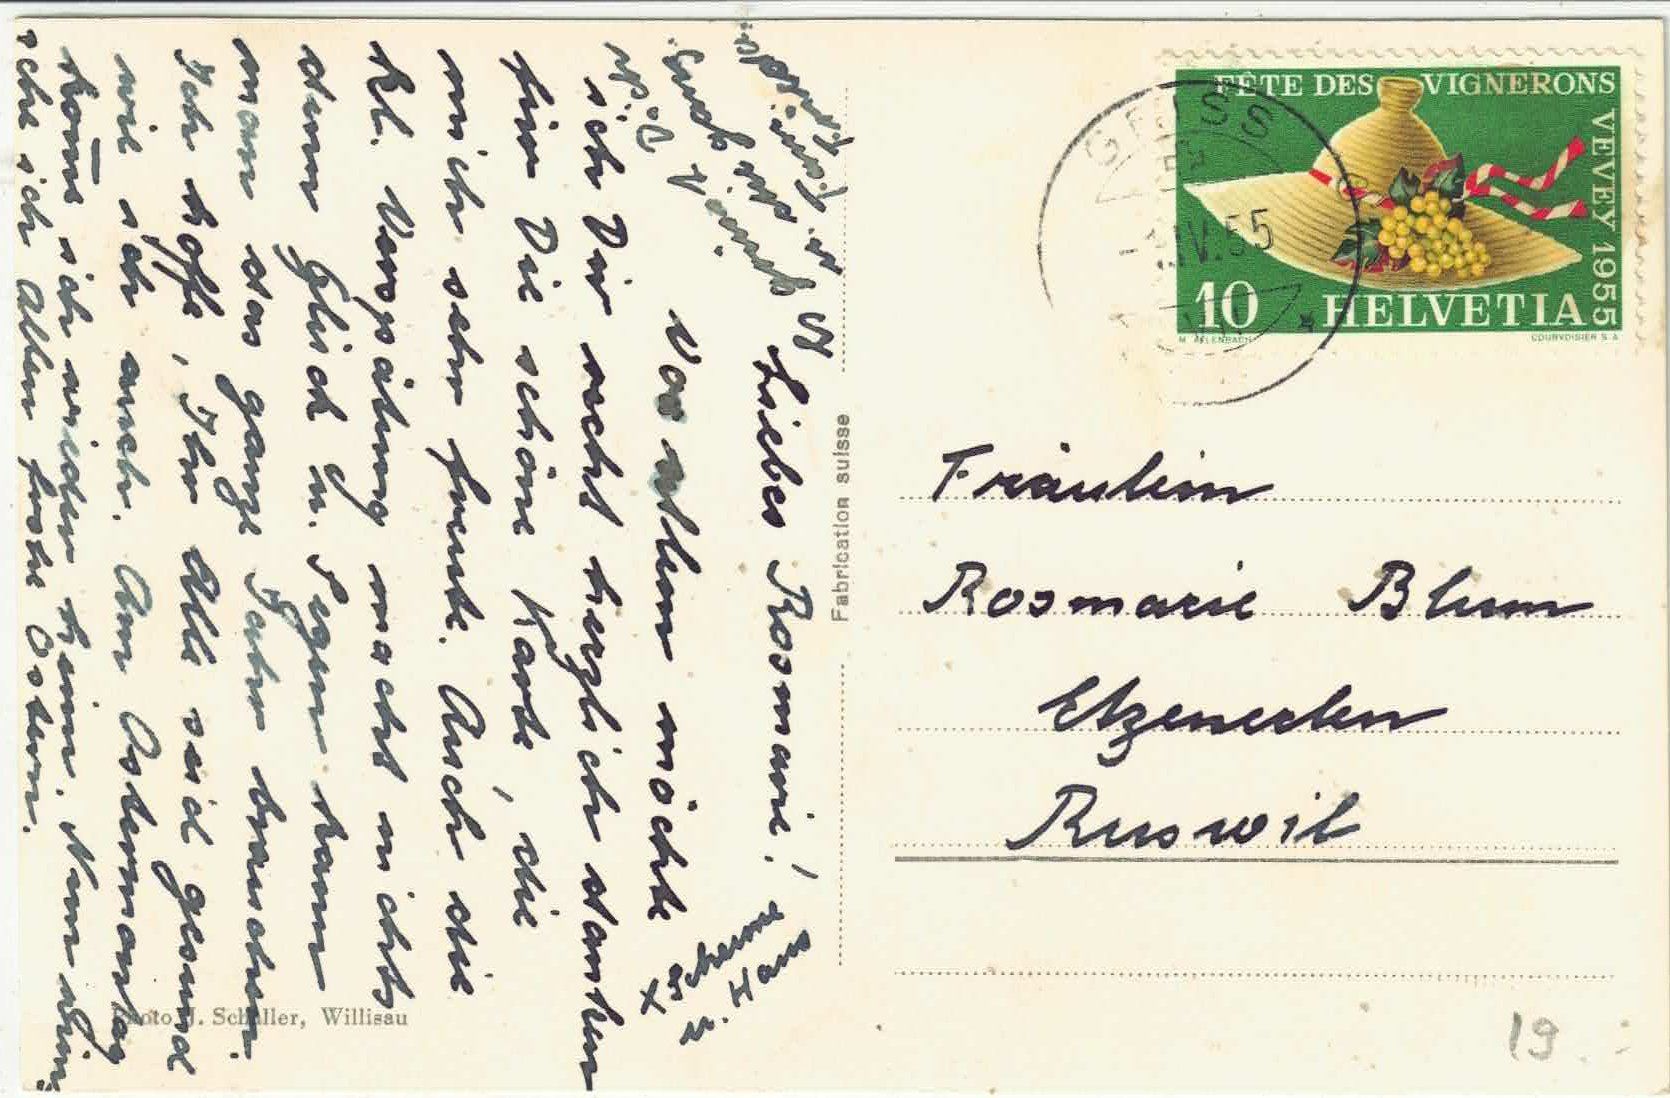 Liebes Rosmarie!
Vor allem möchte
ich Dir recht herzlich danken
für Die schöne Karte, die
mich sehr freute. Auch die
kl. Verspätung macht nichts
denn Glück u. Segen kann
man das ganze Jahr brauchen.
Ich hoffe, Ihr Alle seid gesund
wie ich auch. Am Ostermontag
kome ich wieder heim. Nun wün
sche ich Allen frohe Ostern.
Fabrication suisse
Photo J. Schaller, Willisau
FÊTE DES VIGNERONS
VEVEY 1955
10 HELVETIA
COURVOISIER S A
IV.55
Fräulein
Rosmarie Blum
Etzenerlen
Ruswil
19